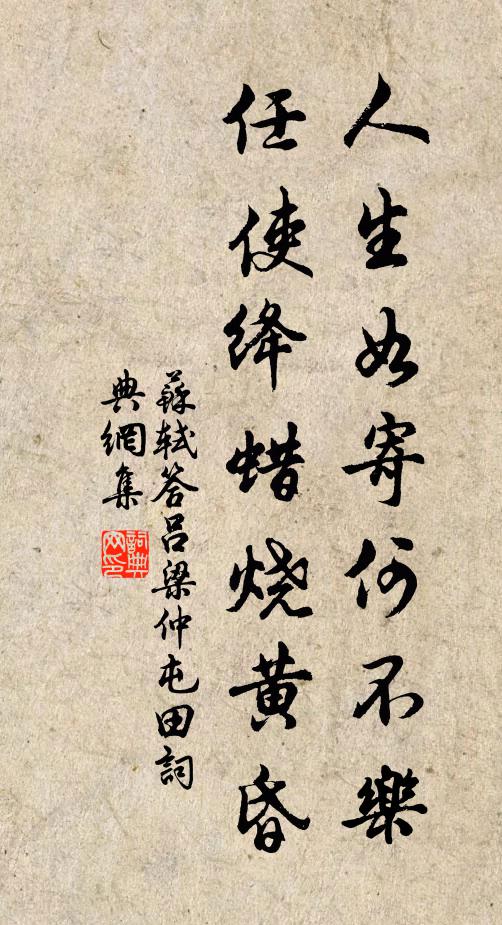 人生如寄何不樂
任使绛蜡烧黄昏
蘇軾答吕梁仲屯田詞
典網集
詞典网印